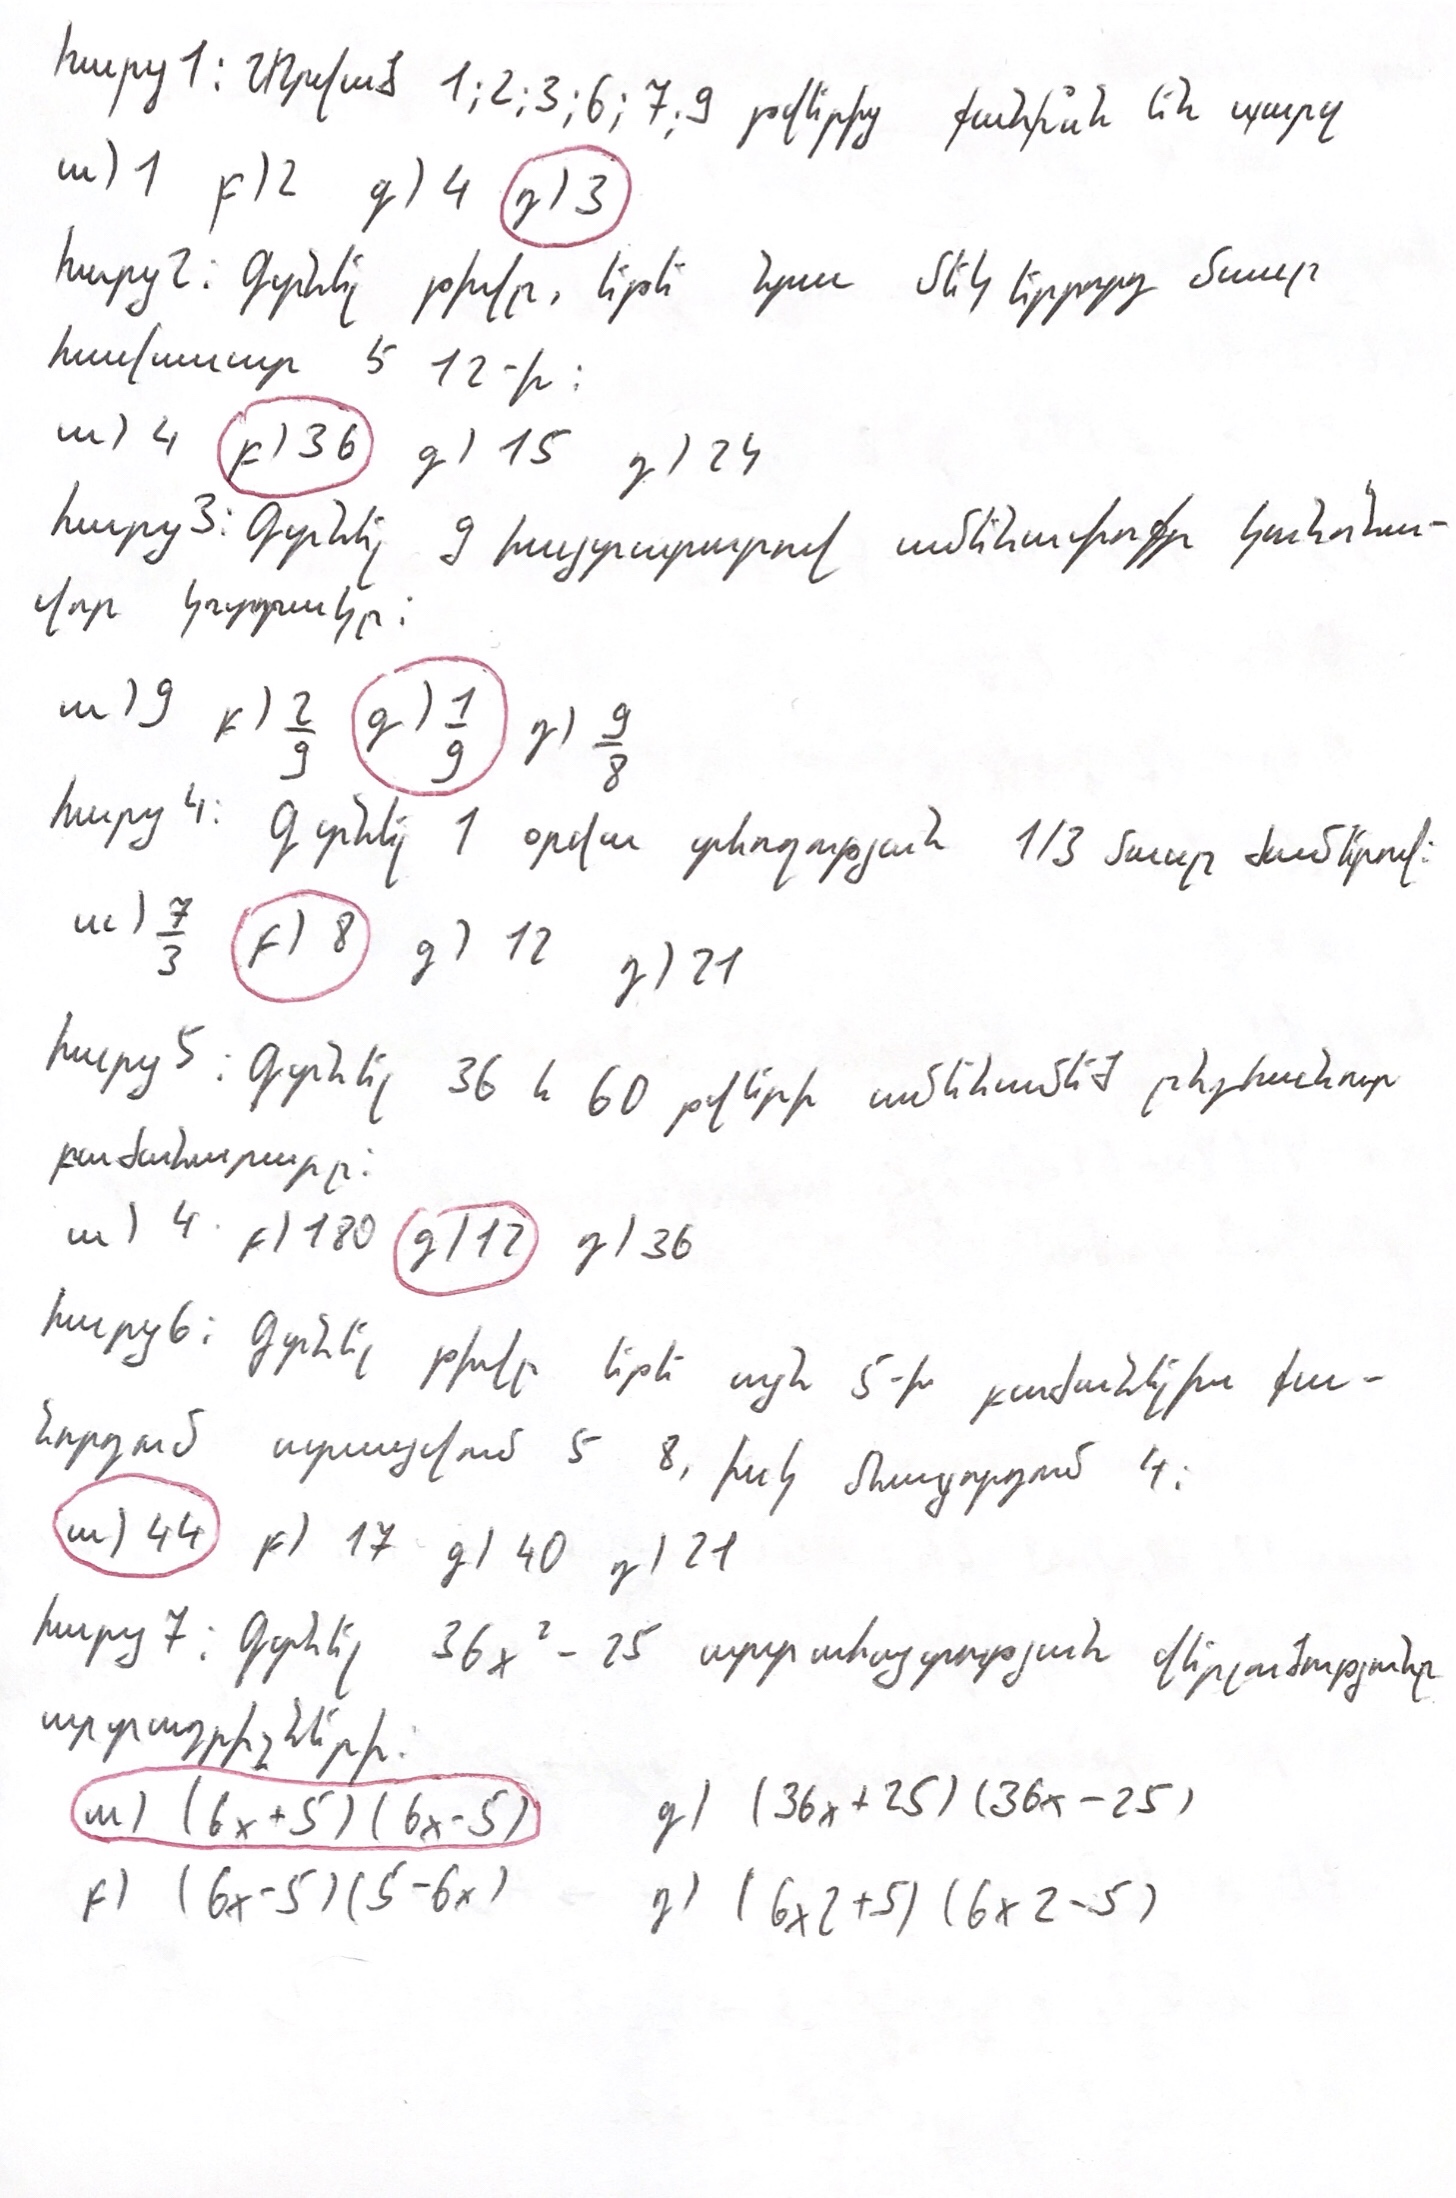 հարց 1: Տրված 1; 2; 3; 6; 7; 9 թվերից քանի՞սն են պարզ
ա) 1 բ) 2 գ) 4 դ) 3
հարց 2: Գտնել թիվը, եթե նրա մեկ երրորդ մասը
հավասար է 12-ի:
ա) 4 բ) 36 գ) 15 դ) 24
հարց 3: Գտնել 9 հայտարարով ամենափոքր կանոնա-
վոր կոտորակը:
ա) 9 բ) 2/9 գ) 1/9 դ) 9/8
հարց 4: Գտնել 1 օրվա տևողության 1/3 մասը ժամերով:
ա) 7/3 բ) 8 գ) 12 դ) 21
հարց 5: Գտնել 36 և 60 թվերի ամենամեծ ընդհանուր
բաժանարարը:
ա) 4 բ) 180 գ) 12 դ) 36
հարց 6: Գտնել թիվը եթե այն 5-ի բաժանելիս քա-
նորդում ստացվում է 8, իսկ մնացորդում 4:
ա) 44 բ) 17 գ) 40 դ) 21
հարց 7: Գտնել 36x² - 25 արտահայտության վերլուծությունը
արտադրիչների:
ա) (6x+5)(6x-5) գ) (36x+25)(36x-25)
բ) (6x-5)(5-6x) դ) (6x2+5)(6x2-5)